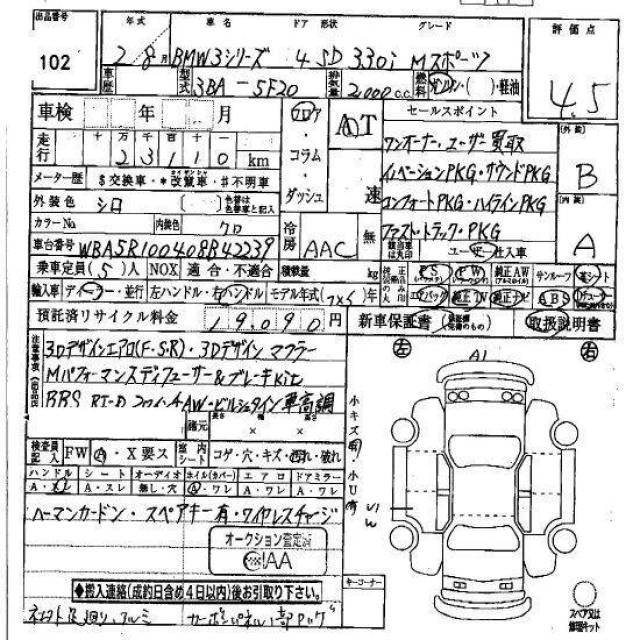 出品番号 年式 車名 ドア 形状 グレード 評価点
102 2 8月 BMW3シリーズ 4 5D 330i Mスポーツ 4.5
車歴 型式 3BA-5F20 排気量 2000c.c. 燃料 ガソリン・( )・軽油
車検 年 月 フロア・コラム・ダッシュ AT 速 セールスポイント
ワンオーナー・ユーザー買取
走行 十 万 千 百 十 一 [外装]
23110 km イノベーションPKG・サウンドPKG B
メーター歴 $交換車・*改ざん車・#不明車 コンフォートPKG・ハイラインPKG [内装]
外装色 シロ 色替は色替車と記入 冷房 AAC 無 ファスト・トラックPKG A
カラーNo 内装色 クロ 該当車は丸印 ユーザー・仕入車
車台番号 WBA5R100408B42239
乗車定員(5)人 NOX 適合・不適合 積載量 kg 純正装備品のみ丸印 PS PW 純正AW サンルーフ 革シート
輸入車 ディーラー・並行 左ハンドル・右ハンドル モデル年式( )年 エアバック 純正TV 純正ナビ ABS
預託済リサイクル料金 19,090円 新車保証書 取扱説明書
注意事項 3Dデザインエアロ(F・S・R)・3Dデザイン マフラー 左 A1 右
MパフォーマンスディフューザーS&ブレーキKit
BBS RI-D 20インチAW・ビルシュタイン車高調
諸元 長さ × 幅 × 高さ
小キズ有
検査員記入 FW A・X要ス 室内シート コゲ・穴・キズ・汚れ・破れ
ハンドル シート オーディオ ホイル(カバー) エアロ ドアミラー 小U有
A・スレ A・スレ 無し・穴 A・ワレ A・ワレ A・ワレ
ハーマンカードン・スペアキー有・ワイヤレスチャージ
オークション査定済
IAA
◆搬入連絡(成約日含め4日以内)後お引取り下さい。 キーコーナー
スペア又は修理キット